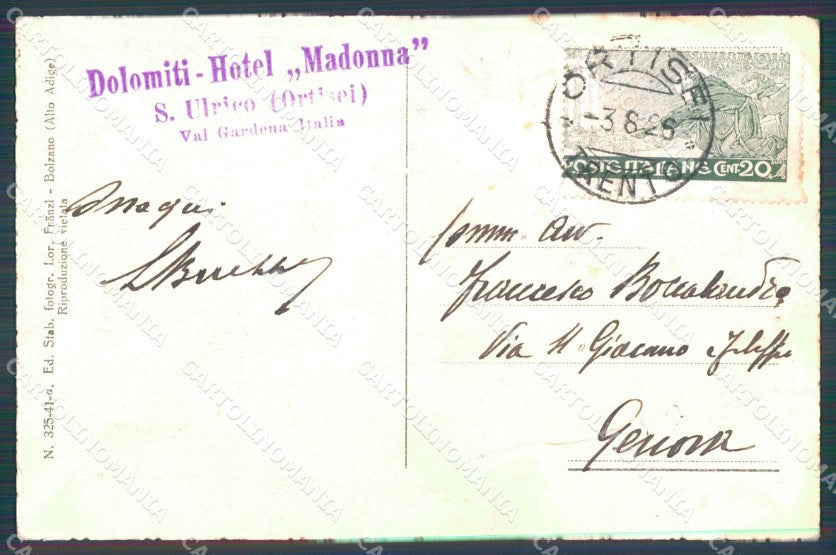 Dolomiti - Hotel „Madonna”
S. Ulrico (Ortisei)
Val Gardena Italia
ORTISEI
-3.8.26
TRENTO
POSTE ITALIANE CENT. 20
Ossequi
Comm. Avv.
Francesco
Via
Giacomo
Genova
N. 325-41-a. Ed. Stab. fotogr. Lor. Fränzl - Bolzano (Alto Adige)
Riproduzione vietata
CARTOLINOMANIA